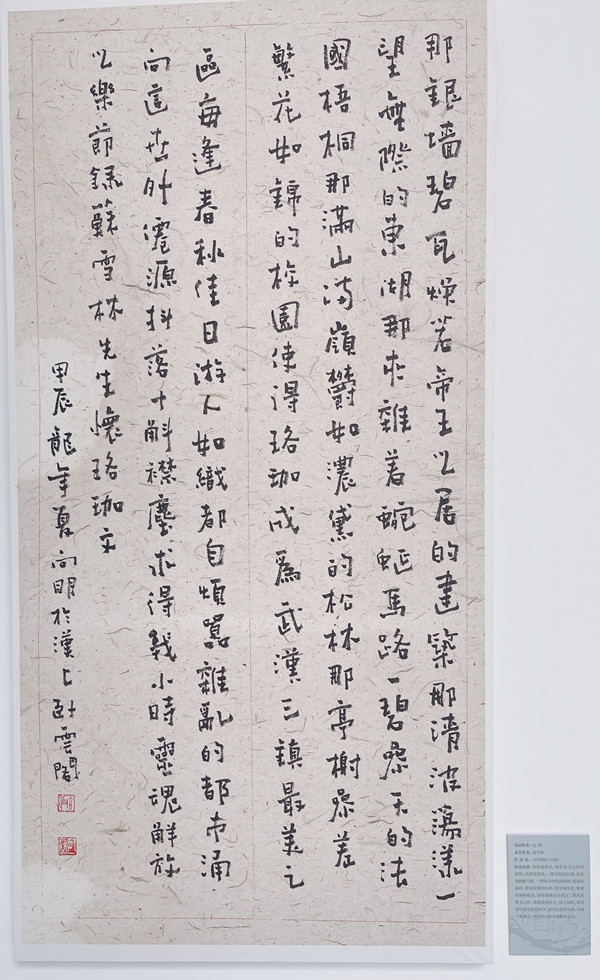 那銀墻碧瓦燦若帝王之居的建築那清波蕩漾一
望無際的東湖那夾雜着蜿蜒馬路一碧參天的法
國梧桐那滿山滿嶺鬱如濃黛的松林那亭榭參差
繁花如錦的校園使得珞珈成爲武漢三鎮最美之
區每逢春秋佳日游人如織都自煩囂雜亂的都市涌
向這世外僊源抖落十斛襟塵求得幾小時靈魂解放
之樂節錄蘇雪林先生懷珞珈文
甲辰龍年夏向明於漢上卧雲閣